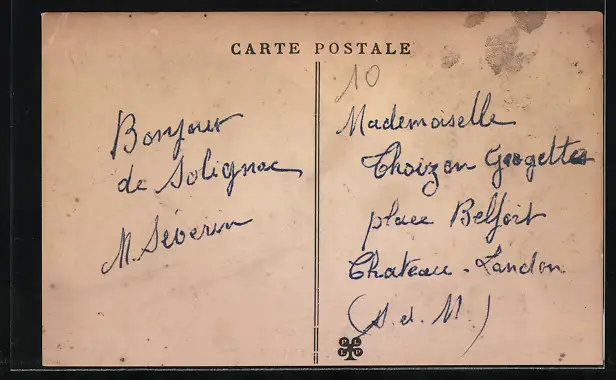 CARTE POSTALE
10
Bonjour
de Solignac
M. Séverin
Mademoiselle
Thoizon Georgette
place Belfort
Chateau-Landon
(S. et. M.)